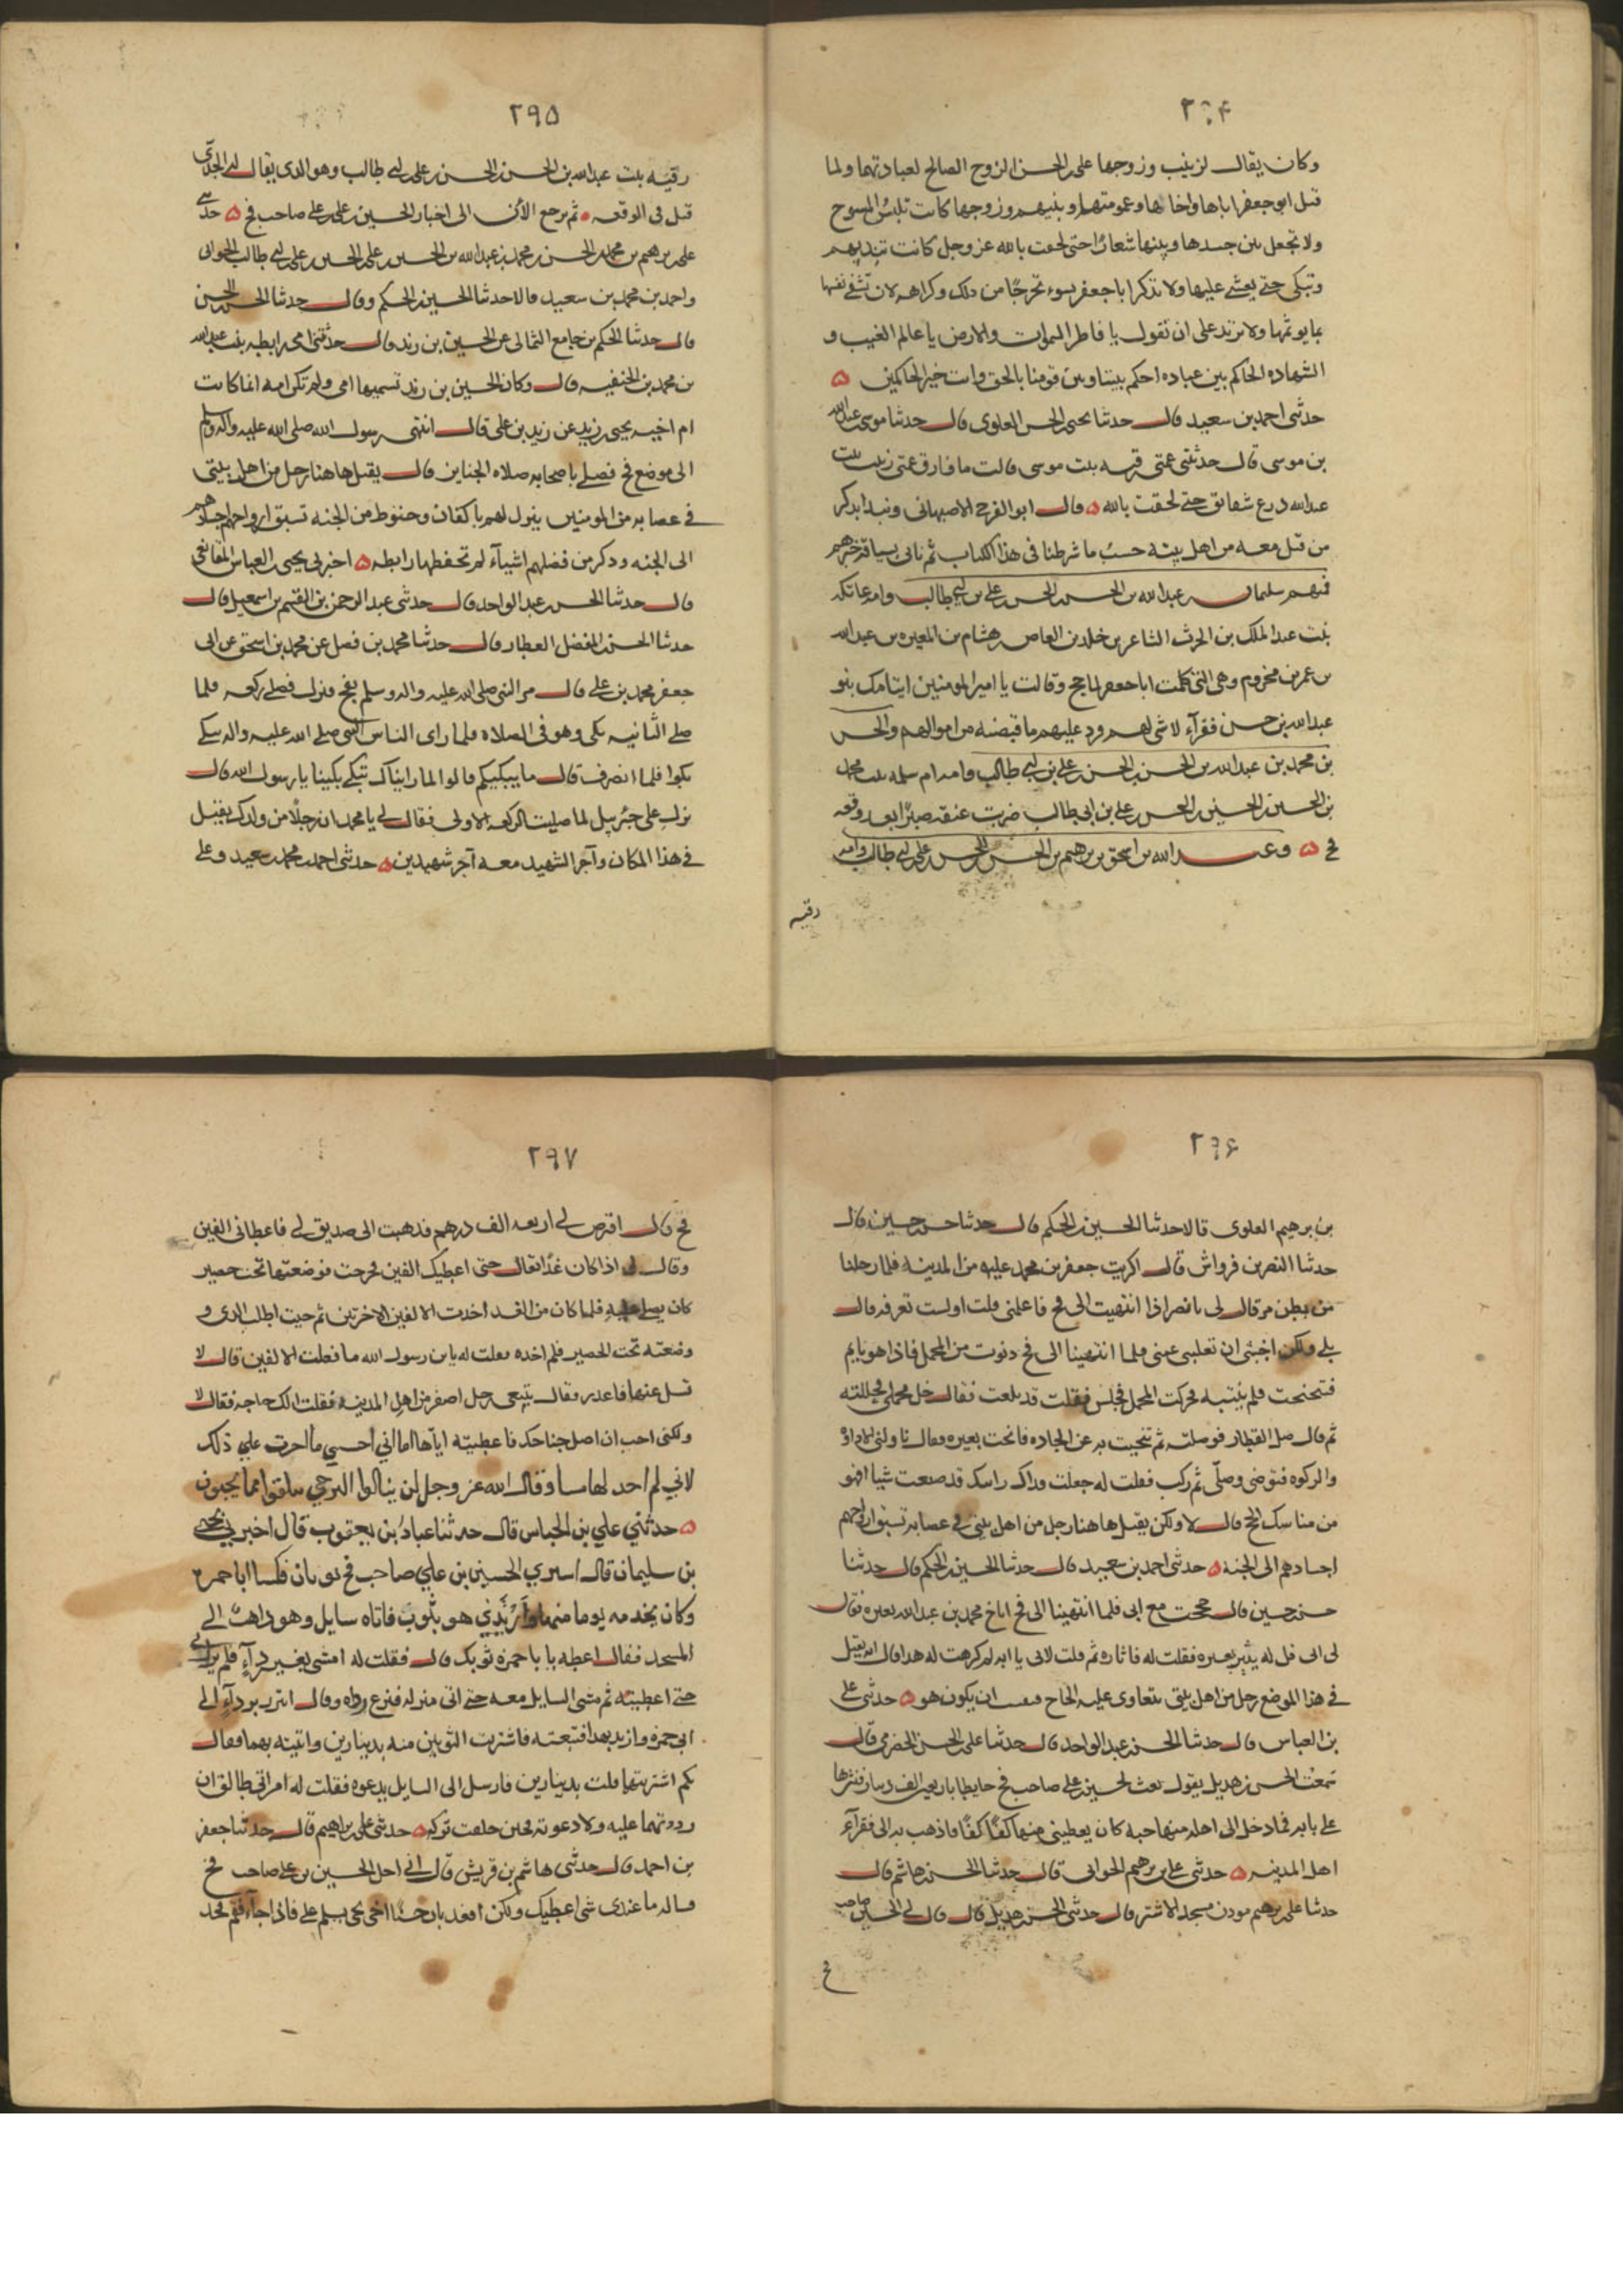 ٢٩۴
وكان يقال لزينب وزوجها على بن الحسن الزوج الصالح لعبادتهما ولما
قتل ابو جعفر اباها واخاها وعمومتها وبنيهم وزوجها كانت تلبس المسوح
ولا تجعل بين جسدها وبينها شعارًا حتى لحقت بالله عز وجل كانت تندبهم
وتبكى حتى يغشى عليها ولا تذكر ابا جعفر بسوء تحرجًا من ذلك وكراهه لان تشفى نفسها
بما يوثمها ولا تزيد على ان تقول يا فاطر السموات والارض يا عالم الغيب و
الشهاده الحاكم بين عباده احكم بيننا وبين قومنا بالحق وانت خير الحاكمين ۵
حدثنى احمد بن سعيد قال حدثنا يحيى بن الحسن العلوى قال حدثنا موسى بن عبد الله
بن موسى قال حدثتنى عمتى رقيه بنت موسى قالت ما فارق عمتى زينب بنت
عبد الله درع شقائق حتى لحقت بالله ۵ قال ابو الفرج الاصبهانى ونبدا بذكر
من قتل معه من اهل بيته حسب ما شرطنا فى هذا الكتاب ثم ناتى بسياقة خبرهم
فمنهم سليمان بن عبد الله بن الحسن بن الحسن بن على بن ابى طالب وامه عاتكه
بنت عبد الملك بن الحرث الشاعر بن خلد بن العاص بن هشام بن المغيره بن عبد الله
بن عمر بن مخزوم وهى التى كلمت ابا جعفر لما حج وقالت يا امير المومنين ايتامك بنو
عبد الله بن حسن فقرآء لا شى لهم فرد عليهم ما قبضه من اموالهم والحسن
بن محمد بن عبد الله بن الحسن بن الحسن بن على بن ابى طالب وامه ام سلمه بنت محمد
بن الحسن بن الحسين بن الحسن بن على بن ابى طالب ضربت عنقه صبرًا بعد وقعه
فخ ۵ وعبد الله بن اسحق بن برهيم بن الحسن بن الحسن بن على بن ابى طالب وامه
رقيه
٢٩۵
رقيه بنت عبد الله بن الحسن بن الحسن بن على بن ابى طالب وهو الذى يقال له الجدّى
قتل فى الوقعه ثم نرجع الآن الى اخبار الحسين بن على بن على صاحب فخ ۵ حدثنى
على بن برهيم بن محمد بن الحسن بن محمد بن عبد الله بن الحسين بن على بن الحسين بن على بن ابى طالب الجوانى
واحمد بن محمد بن سعيد قالا حدثنا الحسين بن الحكم وقال حدثنا الحسن بن الحسين
قال حدثنا الحكم بن جامع الثمالى عن الحسين بن زيد قال حدثتنى امى رابطه بنت عبد الله
بن محمد بن الحنفيه قال وكان الحسين بن زيد تسميها امى ولم تكن امه انما كانت
ام اخيه يحيى بن زيد عن زيد بن على قال انتهى رسول الله صلى الله عليه وآله وسلم
الى موضع فخ فصلى باصحابه صلاه الجناين قال يقتل هاهنا رجل من اهل بيتى
فى عصابه من المومنين ينزل لهم باكفان وحنوط من الجنه تسبق ارواحهم اجسادهم
الى الجنه وذكر من فضلهم اشيآء لم تحفظها رابطه ۵ اخبرنى يحيى بن العباس المقانعى
قال حدثنا الحسن بن عبد الواحد قال حدثنى عبد الرحمن بن القسم بن اسمعيل قال
حدثنا الحسن بن المفضل العطار قال حدثنا محمد بن فضل عن محمد بن اسحق عن ابى
جعفر محمد بن على قال مر النبى صلى الله عليه واله وسلم بفخ فنزل فصلى ركعه فلما
صلى الثانيه بكى وهو فى الصلاه فلما راى الناس النبى صلى الله عليه واله يبكى
بكوا فلما انصرف قال ما يبكيكم قالوا لما رايناك تبكى بكينا يا رسول الله قال
نزل على جبرييل لما صليت الركعه الاولى فقال لى يا محمد ان رجلًا من ولدك يقتل
فى هذا المكان وآجر الشهيد معه آجر شهيدين ۵ حدثنى احمد بن محمد بن سعيد وعلى
٢٩۶
بن برهيم العلوى قالا حدثنا الحسين بن الحكم قال حدثنا حسن بن حسين قال
حدثنا النضر بن قرواش قال اكريت جعفر بن محمد عليه من المدينه فلما رحلنا
من بطن مر قال لى يا نضر اذا انتهيت الى فخ فاعلمنى قلت اولست تعرفه قال
بلى ولكن اخشى ان تغلبنى عينى فلما انتهينا الى فخ دنوت من المحمل فاذا هو نايم
فتنحنحت فلم ينتبه فحركت المحمل فجلس فقلت قد بلغت فقال حل محملى فحللته
ثم قال صل القطار فوصلته ثم تنحيت به عن الجاده فانخت بعيره فقال ناولنى الاداوة
والركوه فتوضى وصلّى ثم ركب فقلت له جعلت فداك رايتك قد صنعت شيا افهو
من مناسك الحج قال لا ولكن يقتل هاهنا رجل من اهل بيتى فى عصابه تسبق ارواحهم
اجسادهم الى الجنه ۵ حدثنى احمد بن سعيد قال حدثنا الحسين بن الحكم قال حدثنا
حسن بن حسين قال حججت مع ابى فلما انتهينا الى فخ اناخ محمد بن عبد الله بعيره فقال
لى ابى قل له يثير بعيره فقلت له فاثاره ثم قلت لابى يا ابه لم كرهت له هذا قال انه يقتل
فى هذا الموضع رجل من اهل بيتى يتعاوى عليه الحاج ان يكون هو ۵ حدثنى على
بن العباس قال حدثنا الحسن بن عبد الواحد قال حدثنا على بن الحسن الحضرمى قال
سمعت الحسن بن هديل يقول بعت لحسين بن على صاحب فخ حايطا باربعين الف دينار فنثرها
على بابه فما دخل الى اهله منها حبه كان يعطينى منها كفًا كفًا فاذهب به الى فقرآء
اهل المدينه ۵ حدثنى على بن برهيم الجوانى قال حدثنا الحسن بن هاشم قال
حدثنا على بن برهيم موذن مسجد الاشتر قال حدثنى الحسن بن هديل قال قال لى الحسين صاحب
فخ
٢٩٧
فخ قال اقرض لى اربعه الف درهم فذهبت الى صديق لى فاعطانى الفين
وقال لى اذا كان غدًا تعال حتى اعطيك الفين فخرجت فوضعتها تحت حصير
كان يصلى عليه فلما كان من الغد اخدت الالفين الاخرتين ثم جيت اطلب الذى و
وضعته تحت الحصير فلم اجده فقلت له يا بن رسول الله ما فعلت الالفين قال لا
تسل عنها فاعدت فقال تبعنى رجل اصفر من اهل المدينه فقلت الك حاجه فقال لا
ولكنى احب ان اصل جناحك فاعطيته اياها اما انى أحسبنى ما اجرت على ذلك
لانى لم اجد لها مسا وقال الله عز وجل لن ينالوا البر حتى ينفقوا مما يحبون
۵ حدثني علي بن العباس قال حدثنا عباد بن يعقوب قال اخبرنى يحيى
بن سليمان قال اسرى الحسين بن على صاحب فخ ثوبان فكسا ابا حمزه
وكان يخدمه يوما منهما وأرتدي هو بثوب فاتاه سايل وهو ذاهب الى
المسجد فقال اعطه يا با حمزه ثوبك قال فقلت له امشى بغير ردآء فلم يزل بى
حتى اعطيته ثم مشى السايل معه حتى اتى منزله فنزع رداه وقال اتزر بردآء
ابى حمزه وازيد بهذا فتبعته فاشتريت الثوبين منه بدينارين واتيته بهما فقال
بكم اشتريتهما قلت بدينارين فارسل الى السايل يدعوه فقلت له امراتى طالق ان
رددتهما عليه ولا دعوته فحين حلفت تركه ۵ حدثنى على بن ابراهيم قال حدثنا جعفر
بن احمد قال حدثنى هاشم بن قريش قال اتى رجل الحسين بن على صاحب فخ
فساله ما عندى شى اعطيك ولكن اقعد فان حسنًا اخى يجى يسلم على فاذا جآء فقم فخذ